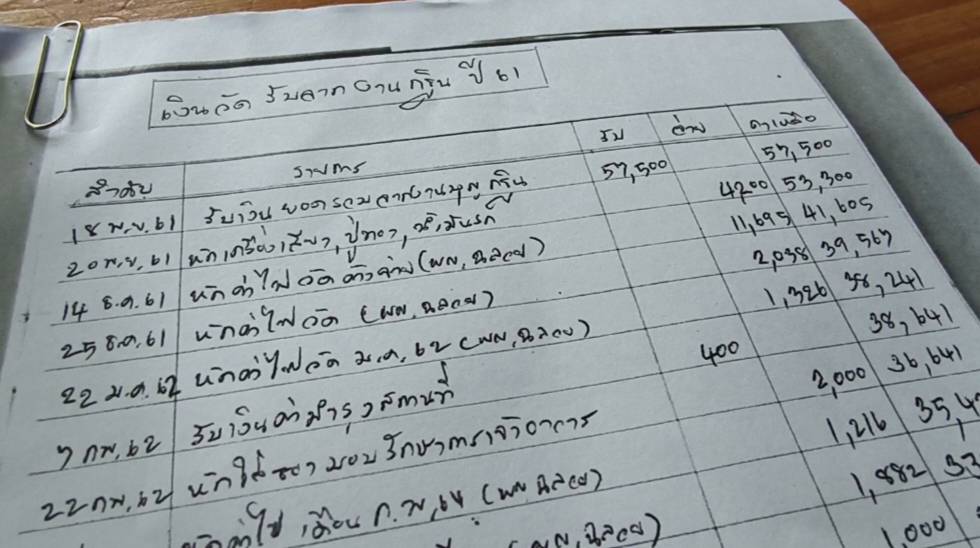 เงินวัด รับจาก งาน กฐิน ปี 61
ลำดับ รายการ รับ จ่าย คงเหลือ
18 พ.ย. 61 รับเงินยอดรวมจากงานบุญกฐิน 57,500 57,500
20 พ.ย. 61 หักเครื่องเสียง, 4200 53,300
14 ธ.ค. 61 หักค่าไฟวัด ค้างจ่าย (พ่อ, ฉลวย) 11,695 41,605
25 ธ.ค. 61 หักค่าไฟวัด (พ่อ, ฉลวย) 2,038 39,567
22 ม.ค. 62 หักค่าไฟวัด ม.ค. 62 (พ่อ, ฉลวย) 1,326 38,241
7 กพ. 62 รับเงินค่าบำรุงสถานที่ 400 38,641
22 กพ. 62 หักใส่ซอง มอบ 2,000 36,641
ค่าไฟ เดือน ก.พ. (พ่อ ฉลวย) 1,216
ฉลวย) 1,882
1,000